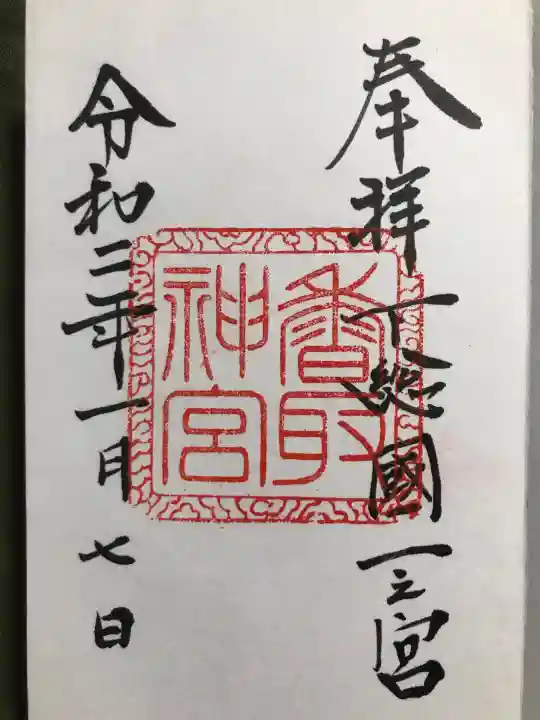 奉拝 下総國一之宮
香取
神宮
令和二年一月七日